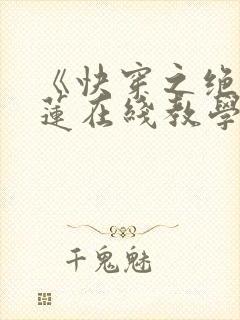 《快穿之绝
蓮在綫教學
千鬼魅